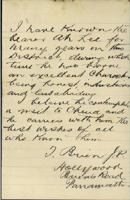 I have known the
bearer Ah Lee for
many years on this
during which
time he has been
an excellent Character
being honest, industrious
and
I believe he
a visit to China and
he carries with him the
best wishes of all
who know him
J.P.
Hollywood
Road
Parramatta